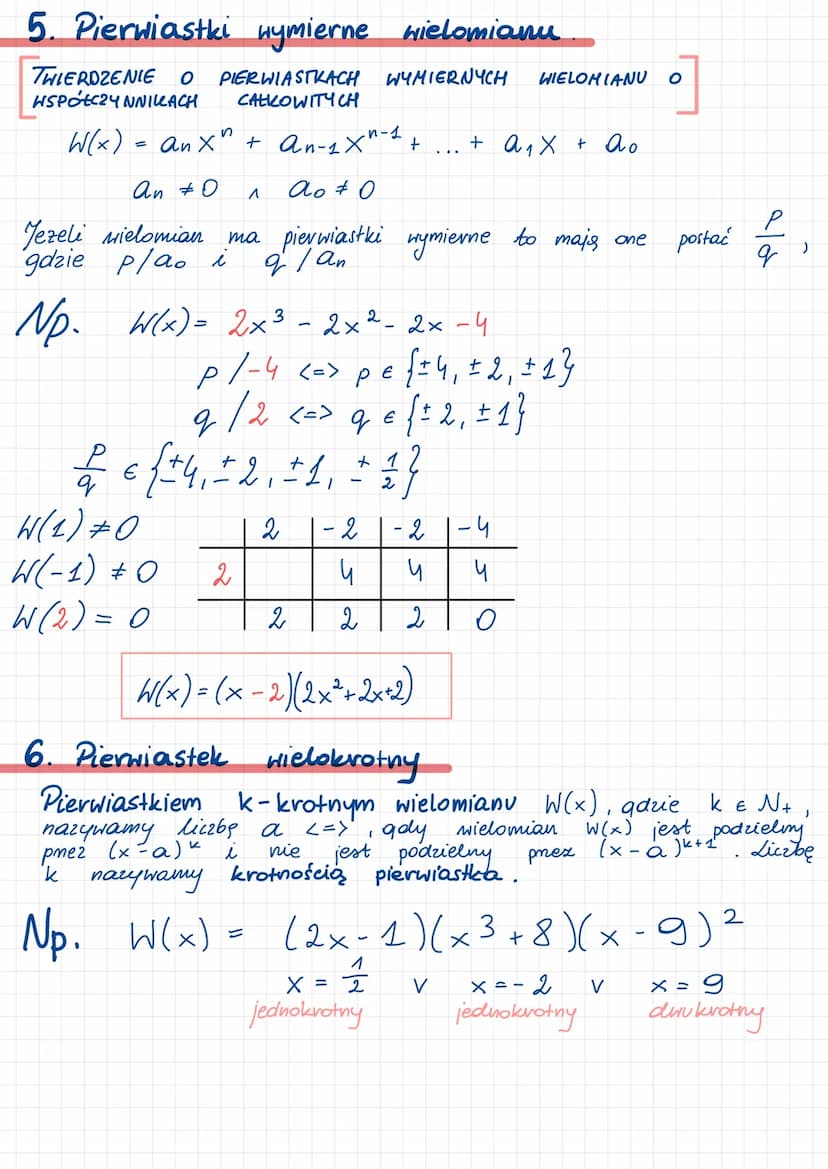 5. Pierwiastki wymierne wielomianu.
TWIERDZENIE O PIERWIASTKACH WYMIERNYCH WIELOMIANU O
WSPÓŁCZYNNIKACH CAŁKOWITYCH
W(x) = aₙxⁿ + aₙ₋₁xⁿ⁻¹ + ... + a₁x + a₀
aₙ ≠ 0 ∧ a₀ ≠ 0
Jeżeli wielomian ma pierwiastki wymierne to mają one postać p/q ,
gdzie p/a₀ i q/aₙ
Np. W(x) = 2x³ - 2x² - 2x - 4
p/-4 <=> p ∈ {±4, ±2, ±1}
q/2 <=> q ∈ {±2, ±1}
p/q ∈ {±4, ±2, ±1, ±1/2}
W(1) ≠ 0 2 -2 -2 -4
W(-1) ≠ 0 2 4 4 4
W(2) = 0 2 2 2 0
W(x) = (x - 2)(2x² + 2x + 2)
6. Pierwiastek wielokrotny
Pierwiastkiem k-krotnym wielomianu W(x), gdzie k ∈ N₊ ,
nazywamy liczbę a <=> , gdy wielomian W(x) jest podzielny
przez (x - a)ᵏ i nie jest podzielny przez (x - a)ᵏ⁺¹ . Liczbę
k nazywamy krotnością pierwiastka .
Np. W(x) = (2x - 1)(x³ + 8)(x - 9)²
x = 1/2 v x = -2 v x = 9
jednokrotny jednokrotny dwukrotny